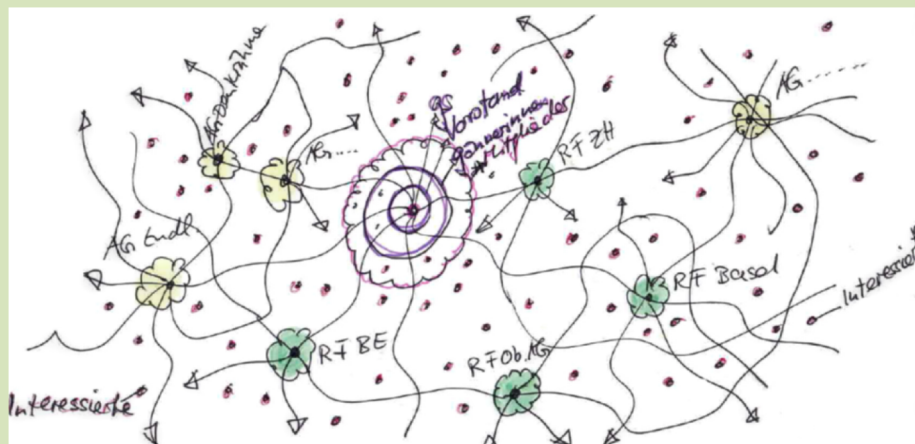 AG Denkräume
GS
Vorstand
Gönnerinnen
Mitglieder
AG.....
AG....
RF ZH
AG Endl.
RF Basel
Interessierte
RF BE
RF Ob.AG
Interessierte